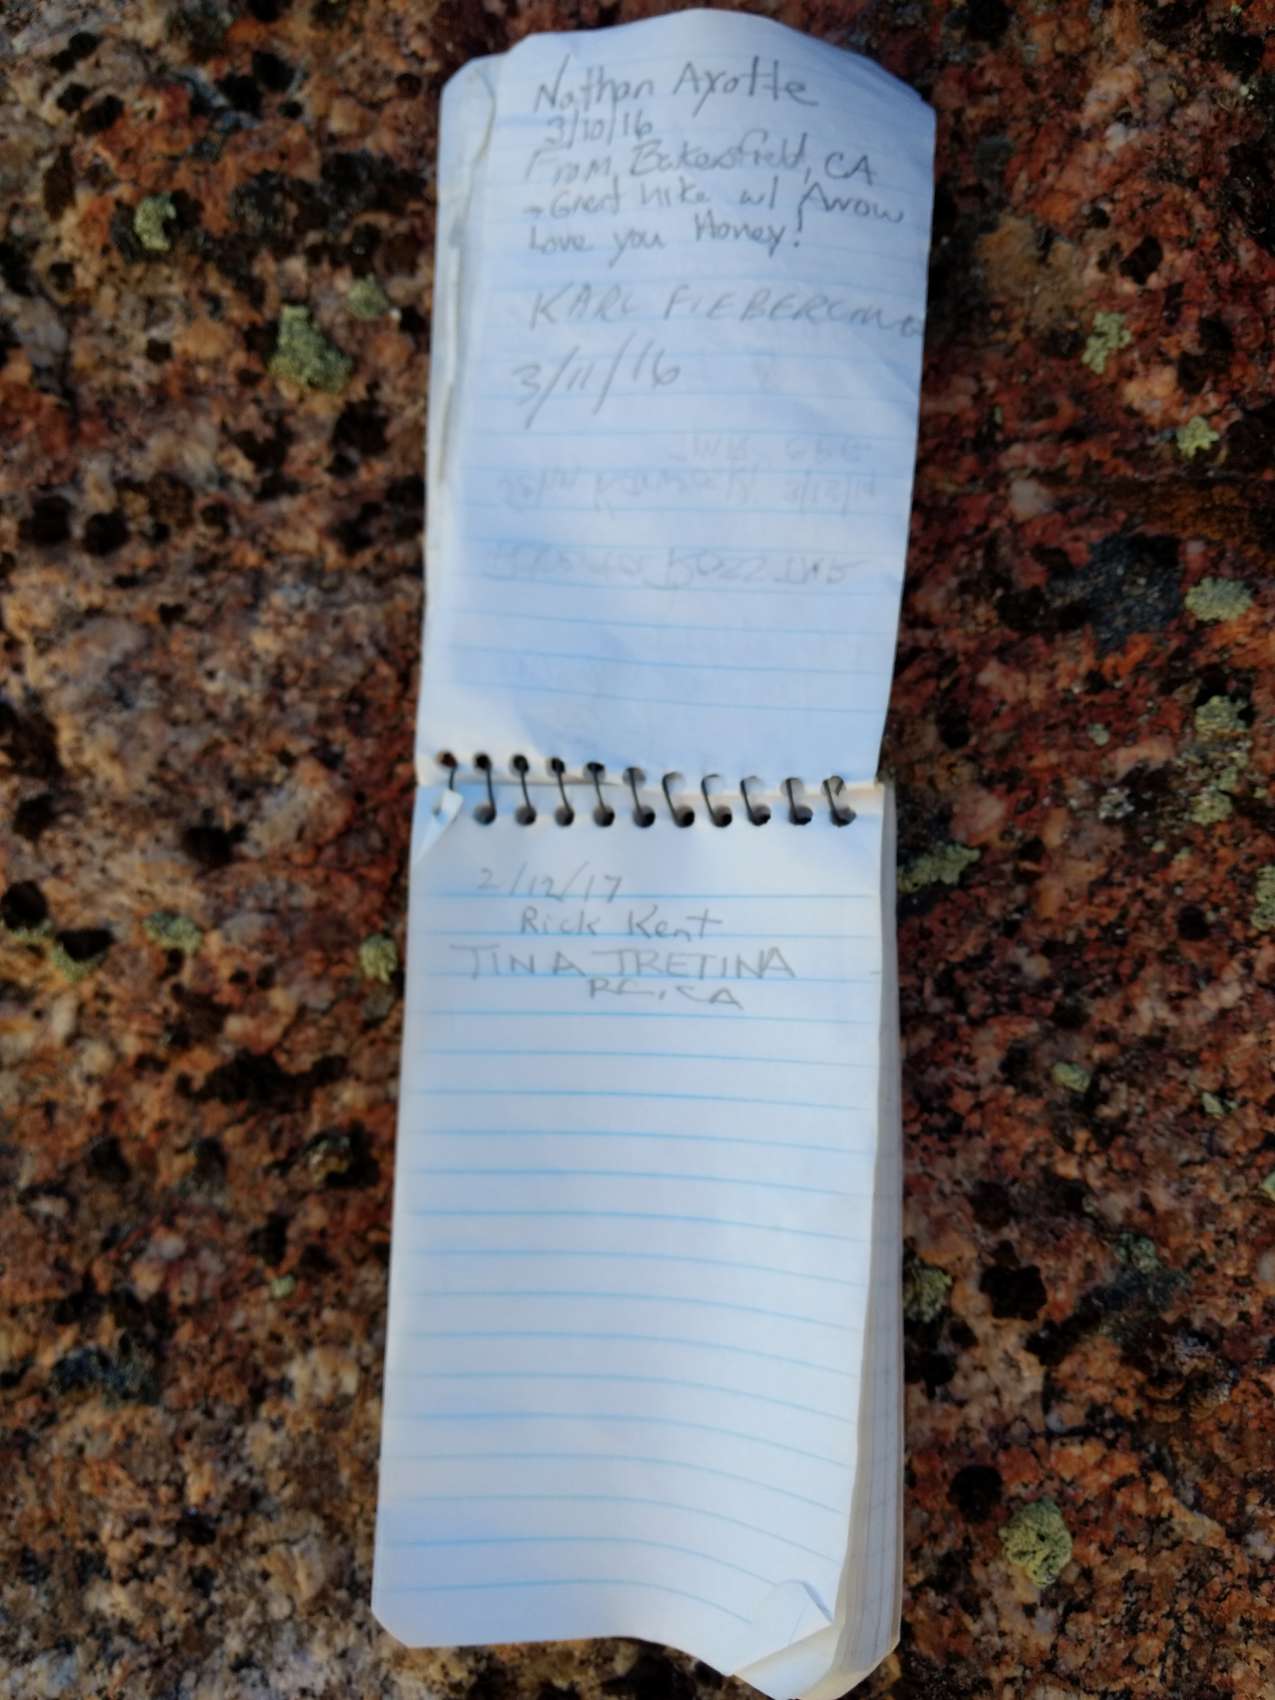 Nathan Ayotte
3/10/16
From Bakersfield, CA
→ Great hike w/ Arrow
Love you Honey!
KARL FIEBERLING
3/11/16
2/12/17
Rick Kent
TINA TRETINA
CA